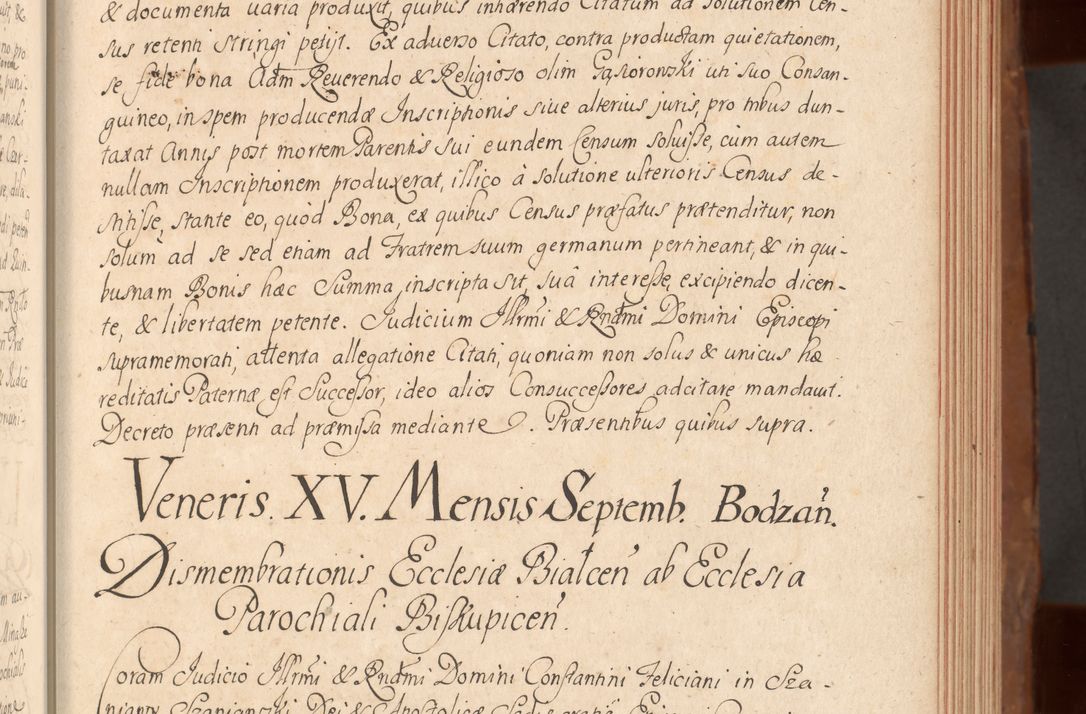 & documenta varia produxit, quibus inhærendo Citatum ad solutionem Cen-
sus retenti stringi petijt. Ex adverso Citato, contra productam quietationem,
se fide bona Adm Reverendo & Religioso olim Gąsiorowski uti suo Consan-
guineo, in spem producendæ Inscriptionis sive alterius juris, pro tribus dun-
taxat Annis post mortem Parentis sui eundem Censum solvisse, cùm autem
nullam Inscriptionem produxerat, illico à solutione ulterioris Census de-
stitisse, stante eo, quòd Bona, ex quibus Census præfatus prætenditur, non
solùm ad se sed etiam ad Fratrem suum germanum pertineant, & in qui-
busnam Bonis hæc Summa inscripta sit, suâ interesse, excipiendo dicen-
te, & libertatem petente. Judicium Illrmi & Rndmi Domini Episcopi
supramemorati, attenta allegatione Citati, quoniam non solus & unicus hæ-
reditatis Paternæ est Successor, ideo alios Consuccessores adcitare mandavit.
Decreto præsenti ad præmissa mediante. Præsentibus quibus supra.
Veneris. XV. Mensis Septemb. Bodzań.
Dismembrationis Ecclesiæ Białcen ab Ecclesia
Parochiali Biskupicen.
Coram Judicio Illrmi & Rndmi Domini Constantini Feliciani in Sza-
niawy Szaniawski Dei & Apostolicæ Sedis gratia